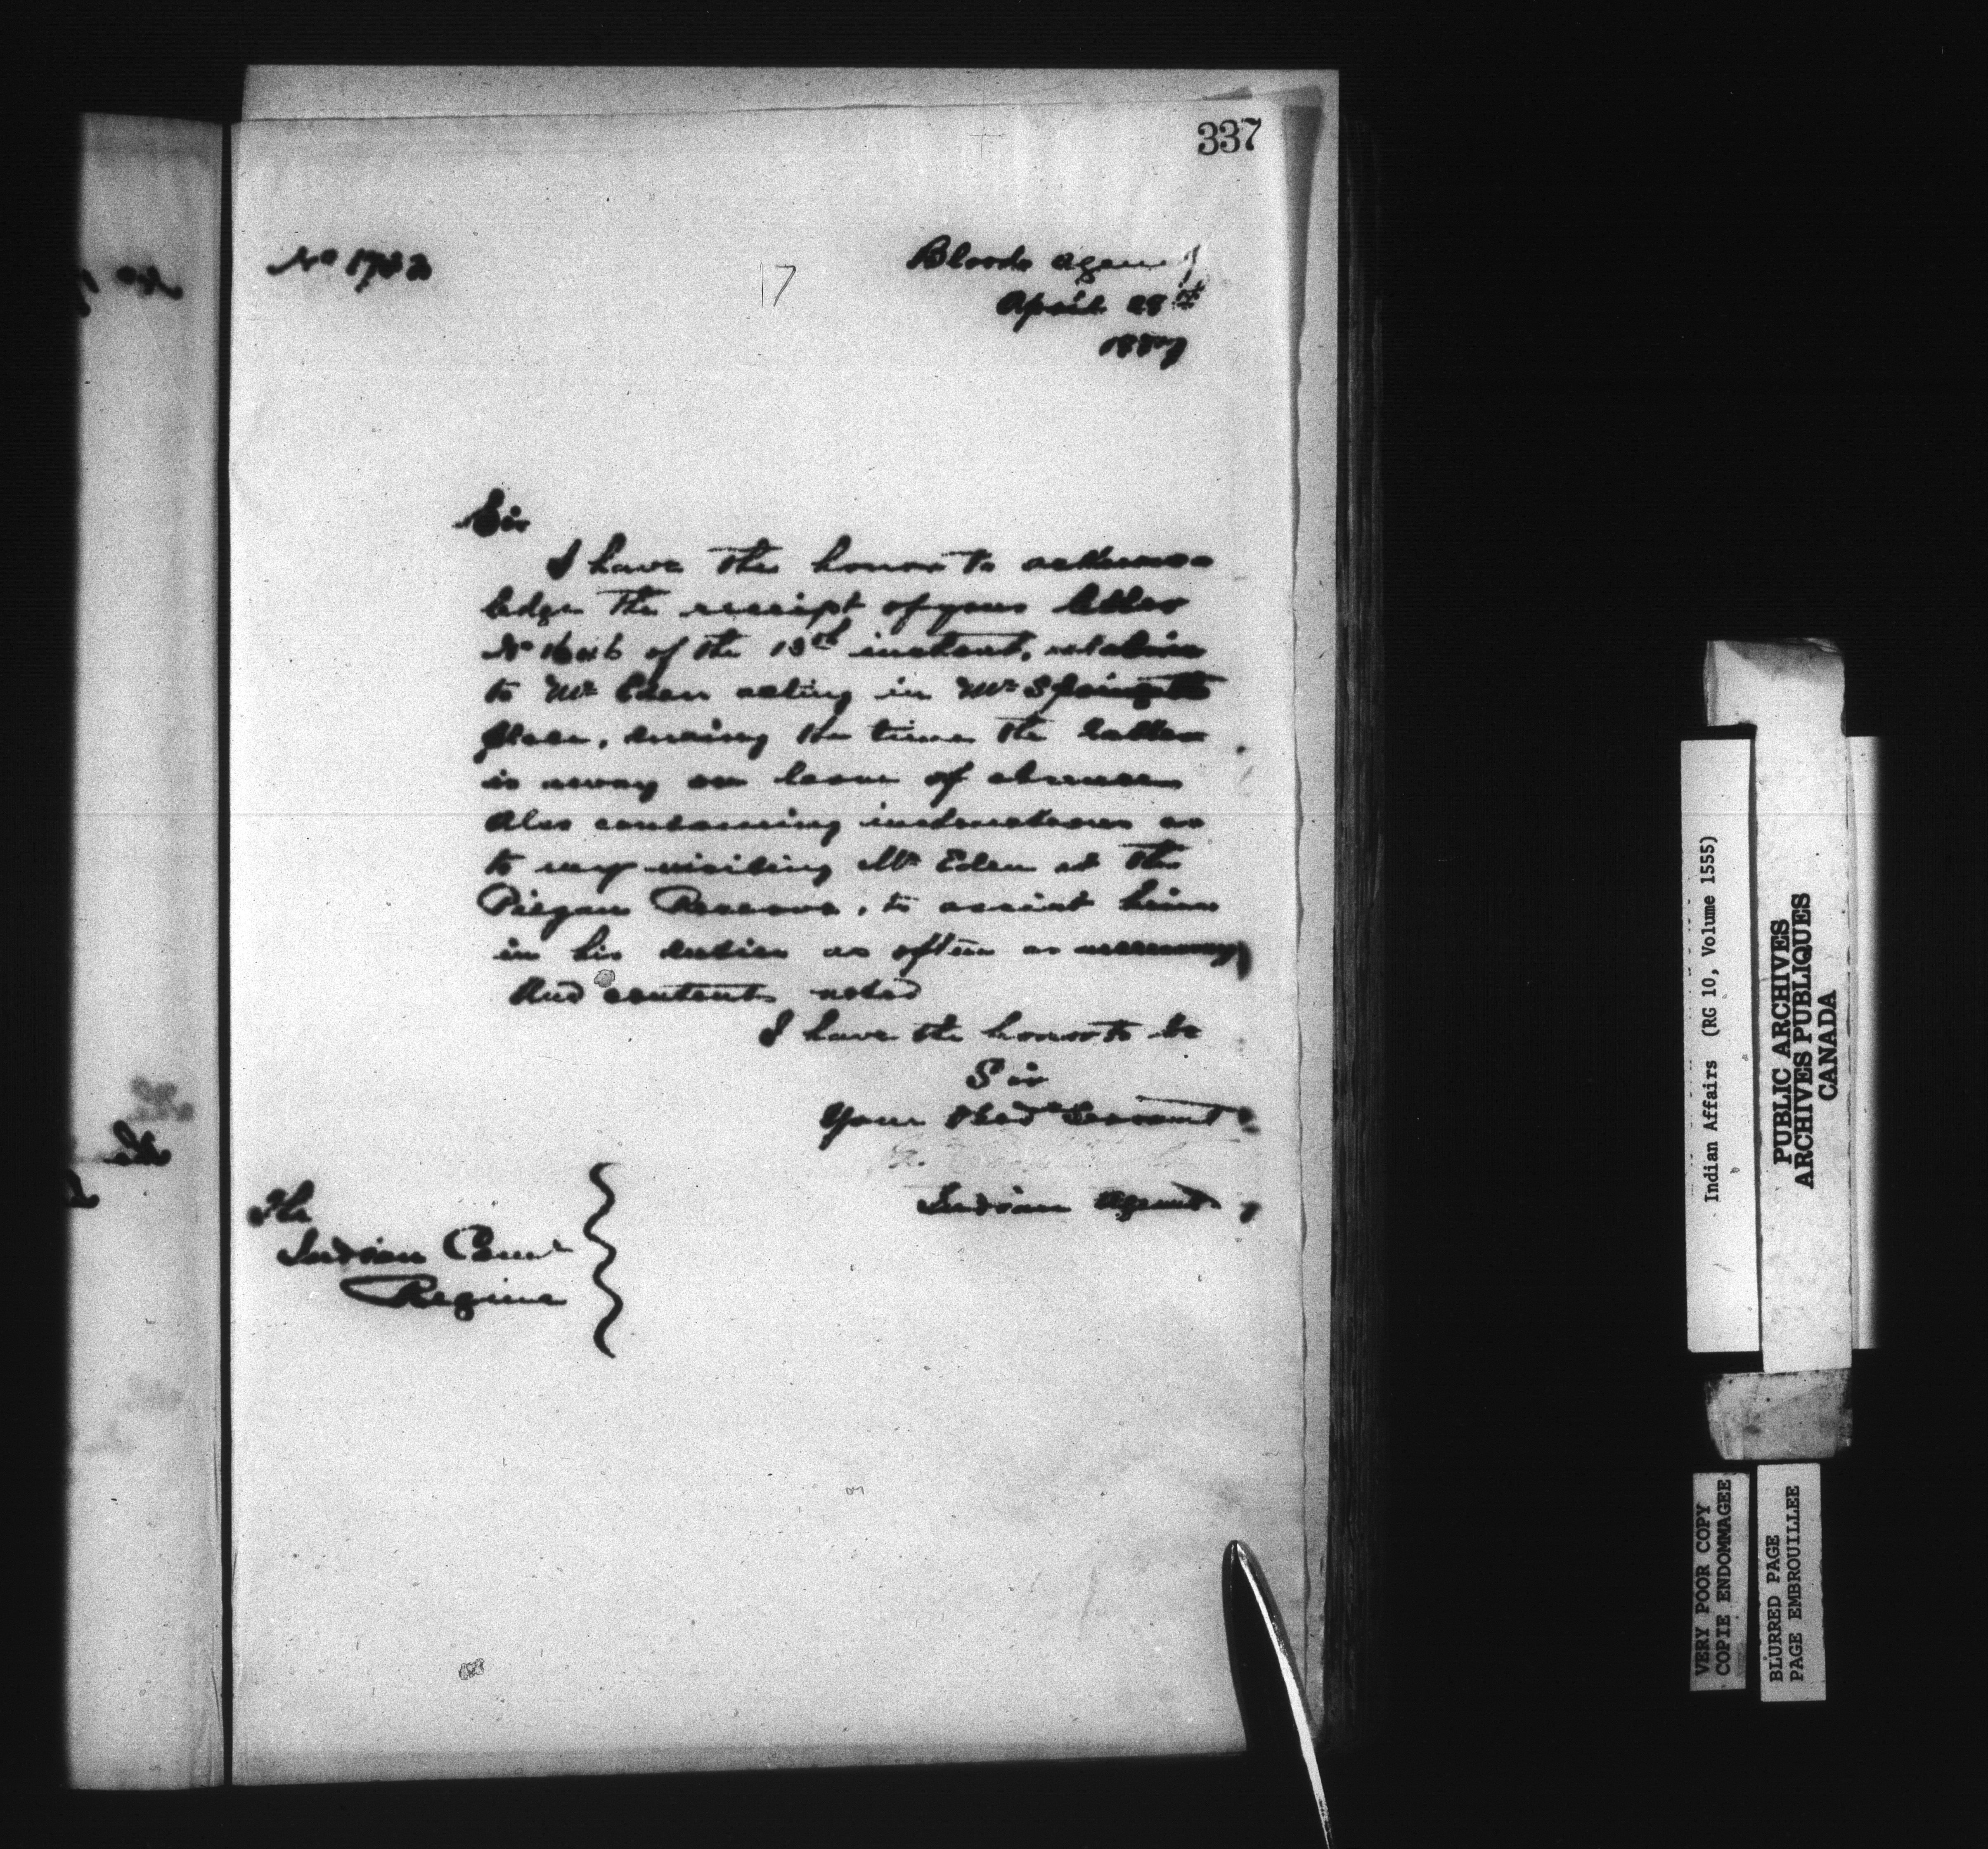 337
No
17
Bloods Agency
April 28th
1887
Sir
I have the honor to acknow-
ledge the receipt of your letter
No of the 13th instant, relative
to Mr Eden acting in Mr Springett's
place, during the time the latter
is away on leave of absence
Also containing instructions as
to my visiting Mr Eden at the
Piegan Reserve, to assist him
in his duties as often as necessary
And contents noted
I have the honor to be
Sir
Your Obed Servant
Indian Agent
The
Indian Comr
Regina
Indian Affairs (RG 10, Volume 1555)
PUBLIC ARCHIVES
ARCHIVES PUBLIQUES
CANADA
VERY POOR COPY
COPIE ENDOMMAGEE
BLURRED PAGE
PAGE EMBROUILLEE